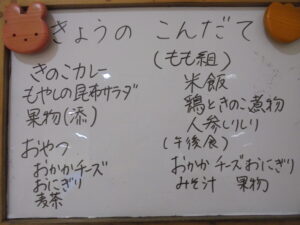 きょうの こんだて
きのこカレー
もやしの昆布サラダ
果物(添)
おやつ
おかかチーズ
おにぎり
麦茶
(もも組)
米飯
鶏ときのこ煮物
人参しりしり
(午後食)
おかかチーズおにぎり
みそ汁 果物